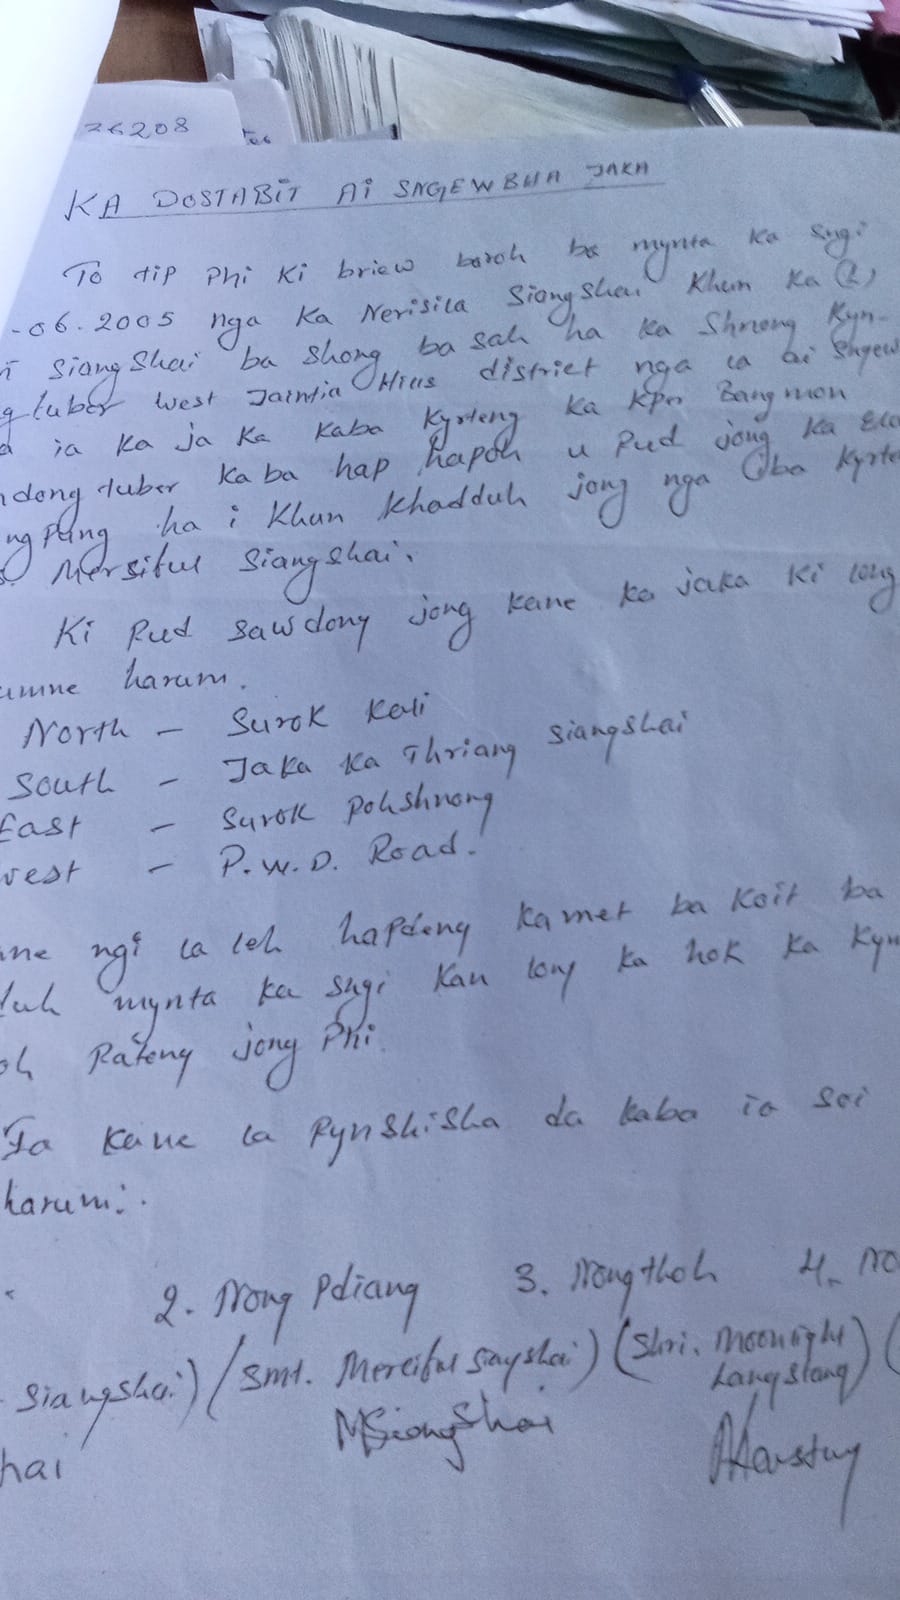 26208
KA DOSTABIT AI SNGEWBHA JAKA
To tip Phi Ki briew baroh ba mynta ka Sngi
-06.2005 nga Ka Nerisila Siangshai Khun Ka (L)
Siangshai ba shong ba sah ha ka Shnong Kyn-
tuber West Jaintia Hills district nga la ai Shgew
ia ka ja Ka Kaba Kyrteng ka Kper Bangmon
ndong tuber Kaba hap hapoh u Pud jong Ka Ela
ng Pung ha i Khun Khadduh jong nga Oba Kyrte
Mersiful Siangshai.
Ki Pud Sawdong jong Kane ka jaka Ki long
kumne harum.
North - Surok Kali
South - Jaka Ka Thriang Siangshai
East - Surok Pohshnong
west - P.W.D. Road.
ne ngi la leh hapdeng kamet ba Koit ba
mynta ka Sngi Kan long ka hok ka Kyn
oh Rateng jong Phi.
Ia Kane la Pynshisha da kaba ia Soi
harum:.
2. Nong Pdiang 3. Nongthoh 4. No
Siangshai) (Smt. Merciful Siayshai) (Shri. Moonlight
Langstang) (
MSiangShai
hai